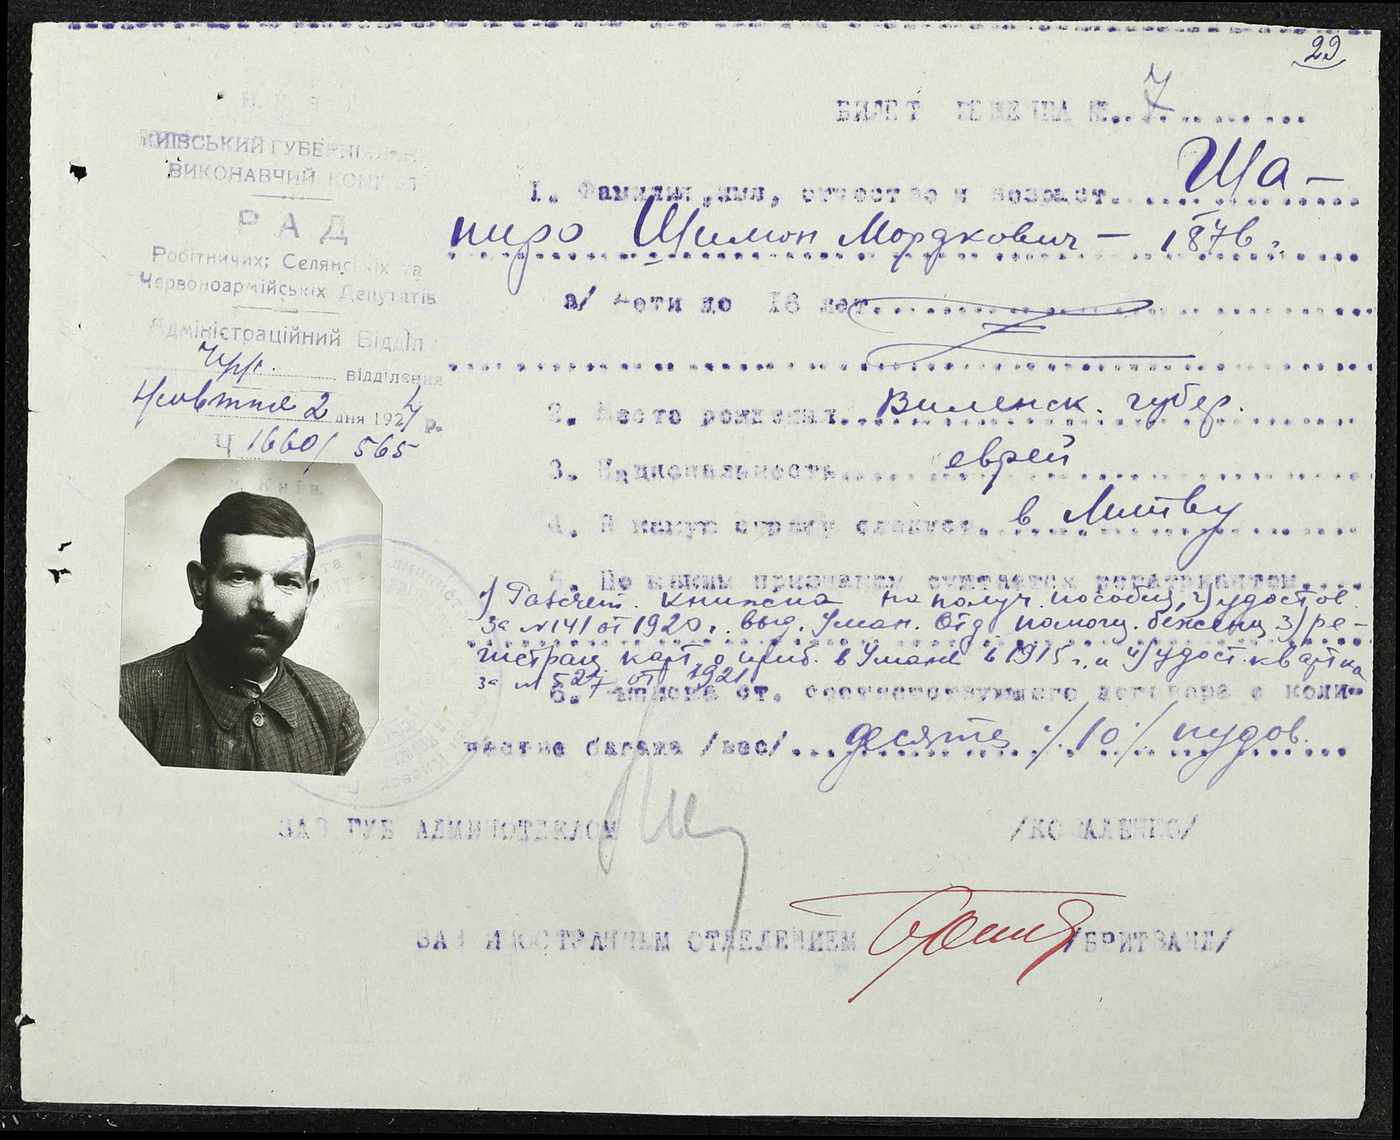 22
БИЛЕТ БЕЖЕНЦА №.. 7
КИЇВСЬКИЙ ГУБЕРНІЯЛЬН
ВИКОНАВЧИЙ КОМІТЕТ
РАД
Робітничих; Селянських та
Червоноармійських Депутатів
Адміністраційний Відділ
відділення
Жовтня 2 дня 1924 р.
Ч 1660/565
м. Київ
1. Фамилия, имя, отчество и возраст. Ша-
пиро Шимон Мордкович - 1876.
а/ дети до 16 лет
2. Место рождения. Виленск. губер.
3. Национальность еврей
4. В какую страну следует. в Литву
5. По каким признакам считается репатриантом.
1) Расчет. книжка на получ. пособия, 2) удостов.
за №141 от 1920 г. выд. Уман. Отд. помощ. беженц. 3) ре-
гистрац. карт. о приб. в Умань в 1915 г. и 4) удост. квартка
за № 527 от 1921
6. ст. соответствующего договора о коли-
честве багажа /вес/... десять /10/ пудов.
ЗАВ ГУБ АДМИНОТДЕЛОМ /КОВАЛЕНКО/
ЗАВ ИНОСТРАННЫМ ОТДЕЛЕНИЕМ /БРИТВАНД/